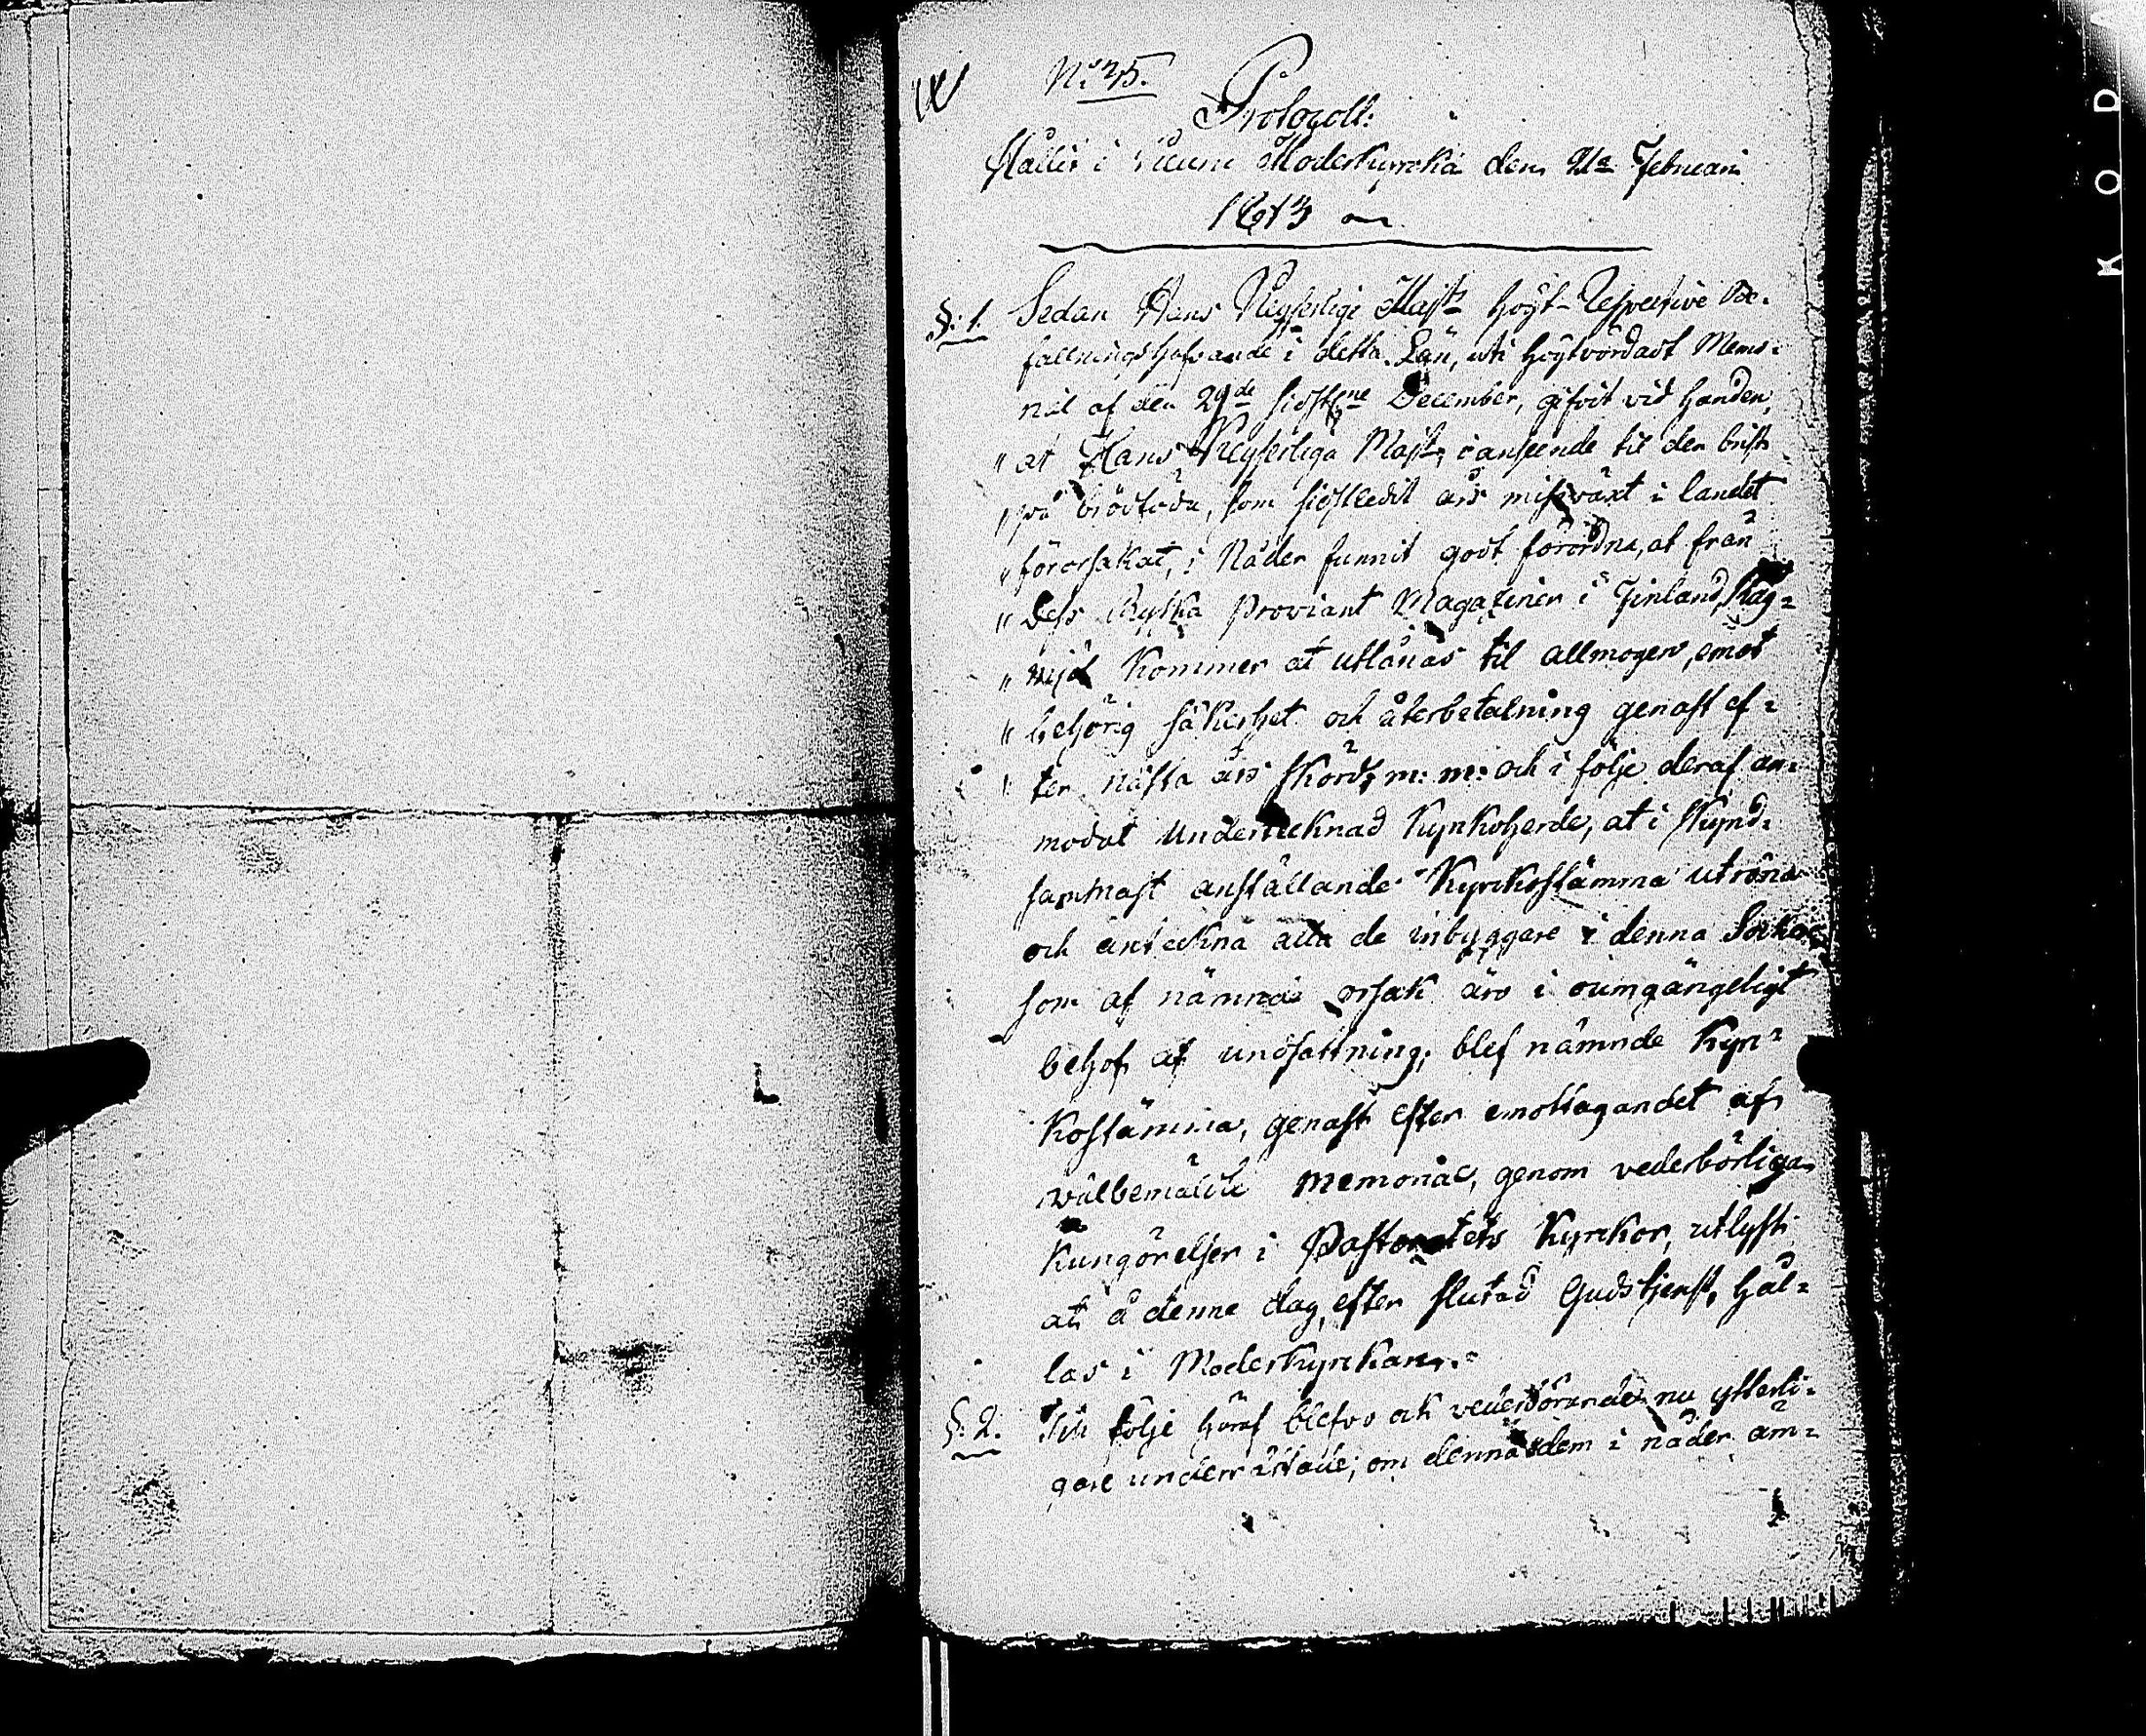 No 25.
Protocoll:
Hållit i Moderkyrka den 21a Februari
1813
§: 1. Sedan Hans Keyserlige Majts högt-Respective Be-
fallningshafvande i detta Län, uti högtvördadt Memo-
rial af den 29de sidstne December, gifvit vid handen,
" at Hans Keyserliga Majt, i anseende til den brist
" på brödföda, som sidstledit års missväxt i landet
" förorsakat, i Nåder funnit godt förordna, at från
" Dess Ryska Proviant Magasiner i Finland, Råg-
" mjöl kommer at utlånas til allmogen, emot
" behörig säkerhet och återbetalning genast ef-
" ter nästa års skörd, m: m: och i följe deraf an-
modat Undertecknad Kyrkoherde, at i skynd-
sammast anställande Kyrkostämma utröna
och anteckna alla de inbyggare i denna Sokn
som af nämnde orsak äro i oumgängeligt
behof af undsättning; blef nämnde Kyr-
kostämma, genast efter emottagandet af
wälbemälde Memorial, genom vederbörliga
Kungörelser i Pastoratets Kyrkor, utlyst
at å denne dag, efter slutad Gudstjenst, hål-
las i Moderkyrkan.
§: 2. Til följe häraf blefvo ock vederbörande nu ytterli-
gare underrättade, om denna dem i nåder äm-
K O D